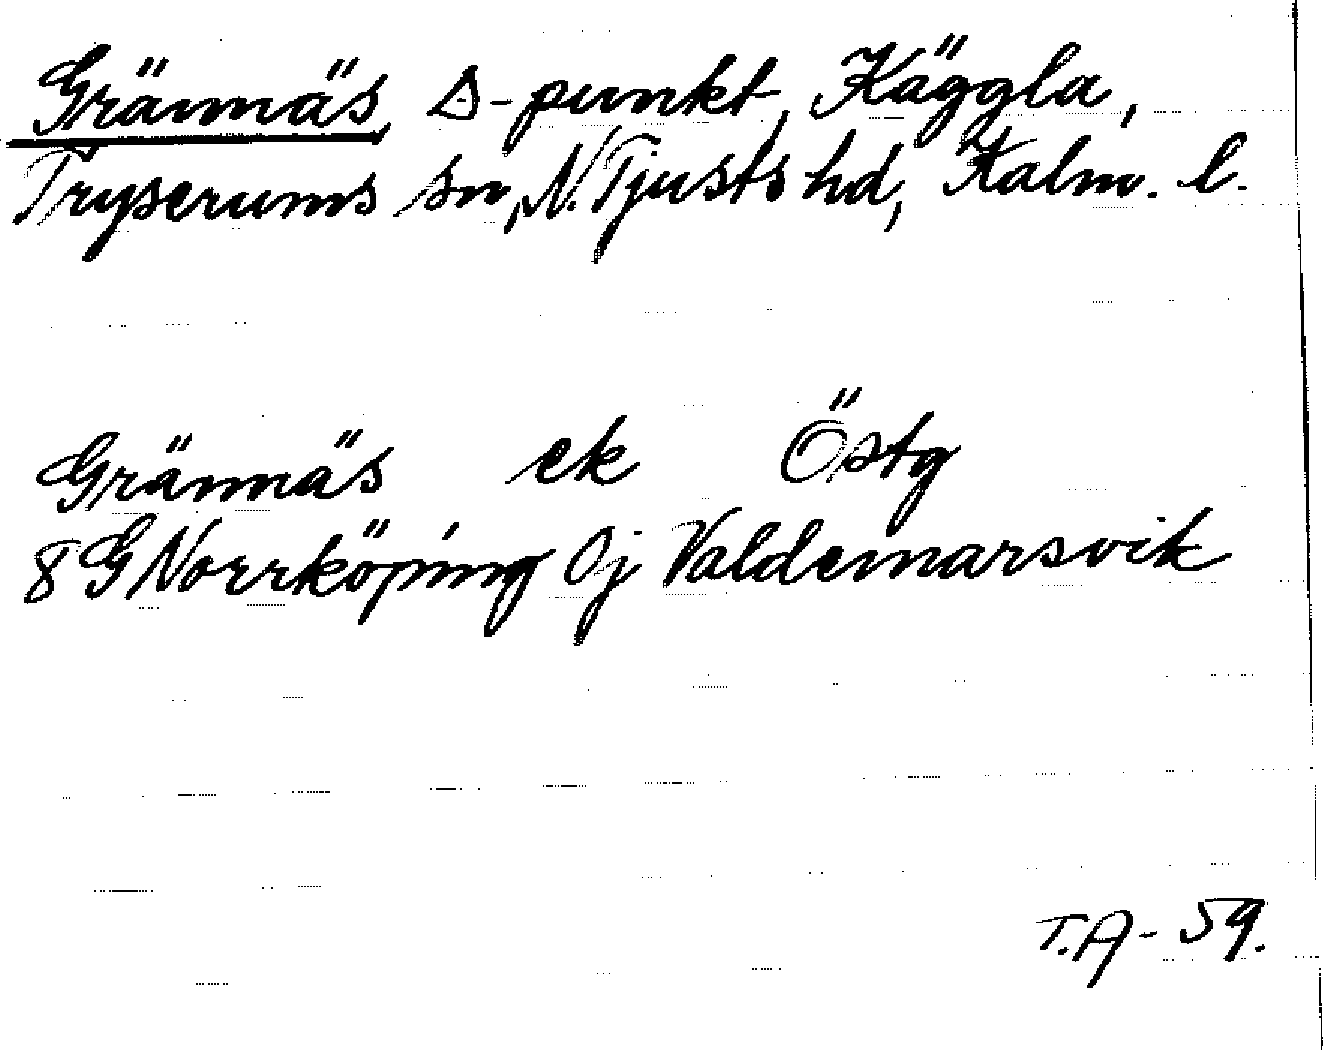 Grännäs, Δ-punkt, Käggla,
Tryserums sn, N. Tjusts hd, Kalm. l.
Grännäs ek Östg
8G Norrköping Oj Valdemarsvik
T.A - 59.